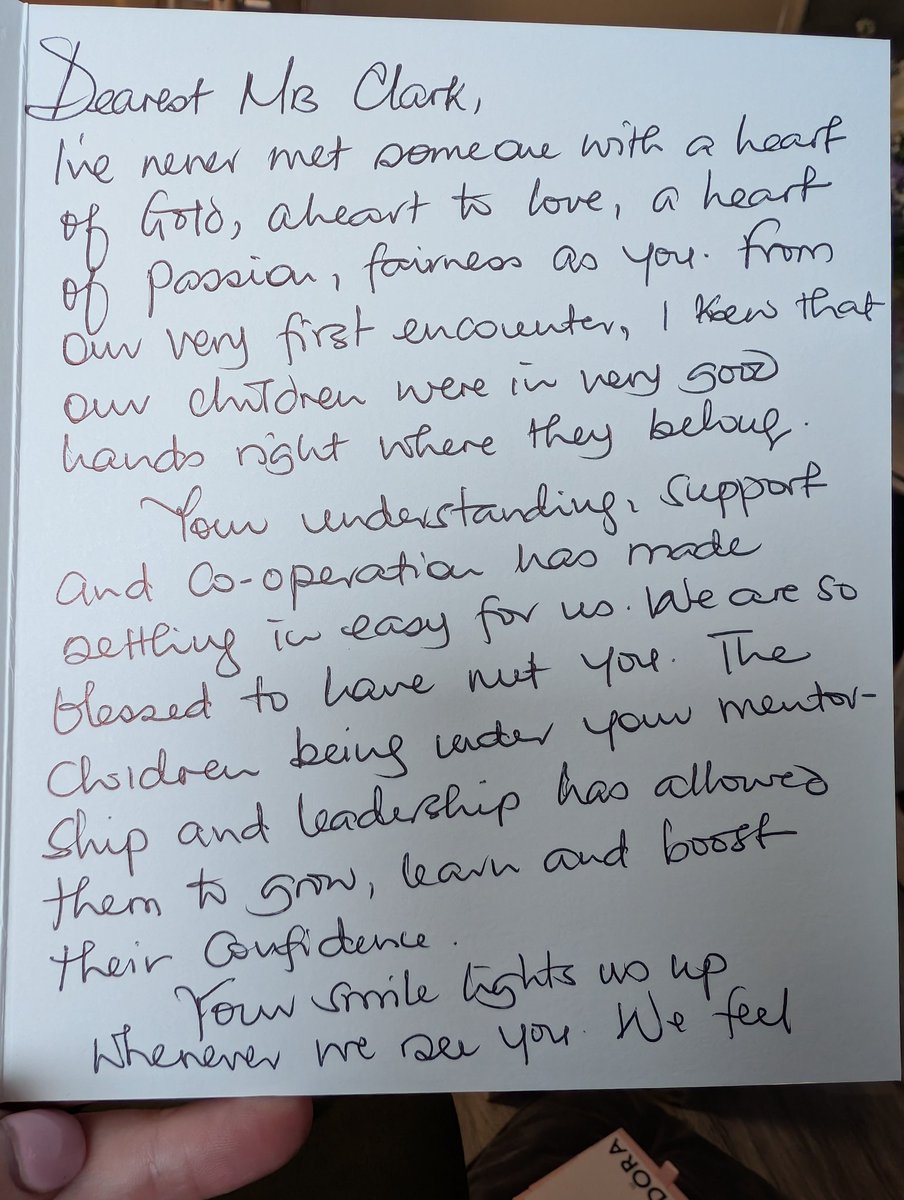 Dearest Ms Clark,
I've never met someone with a heart
of Gold, a heart to love, a heart
of passion, fairness as you. From
our very first encounter, I knew that
our children were in very good
hands right where they belong.
Your understanding, support
and Co-operation has made
settling in easy for us. We are so
blessed to have met you. The
Children being under your mentor-
ship and leadership has allowed
them to grow, learn and boost
their Confidence.
Your smile lights us up
whenever we see you. We feel
DORA